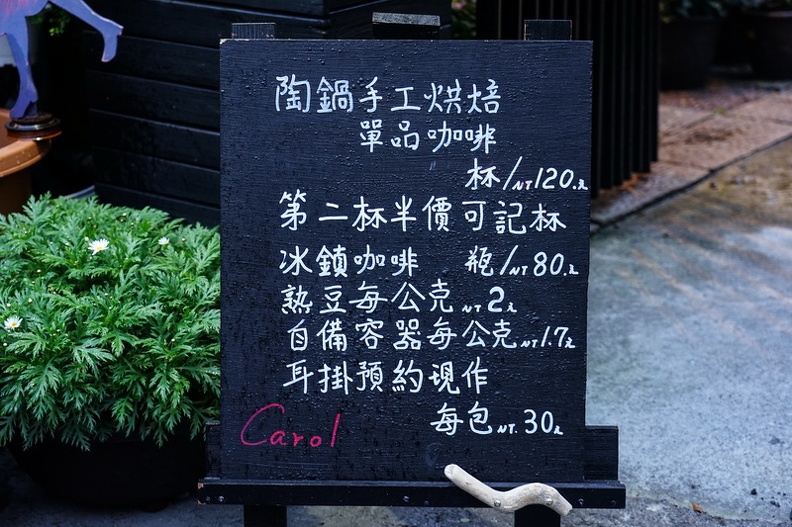 陶鍋手工烘焙
單品咖啡
杯/NT120.元
第二杯半價可記杯
冰鎮咖啡 瓶/NT80.元
熟豆每公克NT2元
自備容器每公克NT1.7元
耳掛預約現作
每包NT.30元
Carol